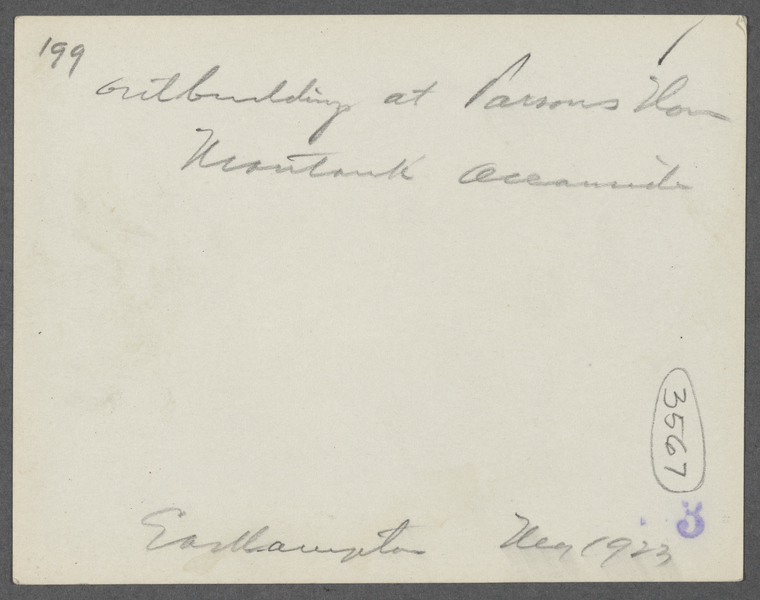 199
outbuilding at Parsons
Montauk Oceanside
3567
Easthampton 1923